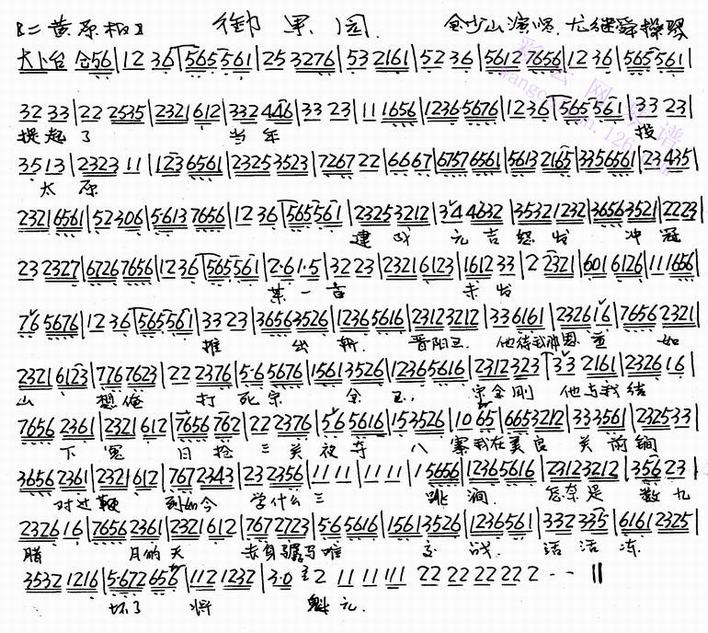 【二黄原板】 御果园 金少山演唱 尤继舜操琴
大卜台 仓56|12 36|565 561|25 3276|53 2161|52 36|5612 7656|12 36|565 561|
32 33|22 2535|2321 612|332 446|33 23|11 1656|1236 5676|12 36|565 561|33 23|
提起了 当年 投
3513|2323 11|1236561|2325 3523|7267 22|6667|6757 6561|5613 2165|3356561|23435|
太原
2321 6561|52306|5613 7656|12 36|565 561|2325 3212|344632|3532 1232|3656 3521|2223|
建成 元吉 怒发 冲冠
23 2327|6726 7656|12 36|565 561|2·61·5|32 23|2321 6123|1612 33|2 2321|601 6126|11 1656|
某一言 未发
76 5676|12 36|565 561|33 23|3656 3526|1236 5616|2312 3212|33 6161|2326 16|7656 2321|
推出斩 晋阳王 他待我神恩重如
2321 6123|776 7623|22 2376|5·65676|1561 3526|1236 5616|231 2323|33 2161|2326 16|
山 想俺 打死宗 金王 宋金刚 他与我结
7656 2361|2321 612|7656 762|22 2376|56 5616|153526|10 65|665 3212|333561|232533|
下冤 日抢三关夜夺八寨我在美良关前锏
3656 2361|2321 612|767 2343|23 2356|11 11|11 11|15656|1236 5616|2312 3212|356 23|
对过鞭 到如今 学什么三 跳涧 怎奈是 数九
2326 16|7656 2361|2321 612|767 2723|5·65616|1561 3526|1236561|332 335|6161 2325|
腊月的天 赤身骣马难 交战 活活冻
3532 1216|5·672 656|112 1232|3·0 2 11 11 11 22 22 22 22 2 -- ‖
坏了将魁元.